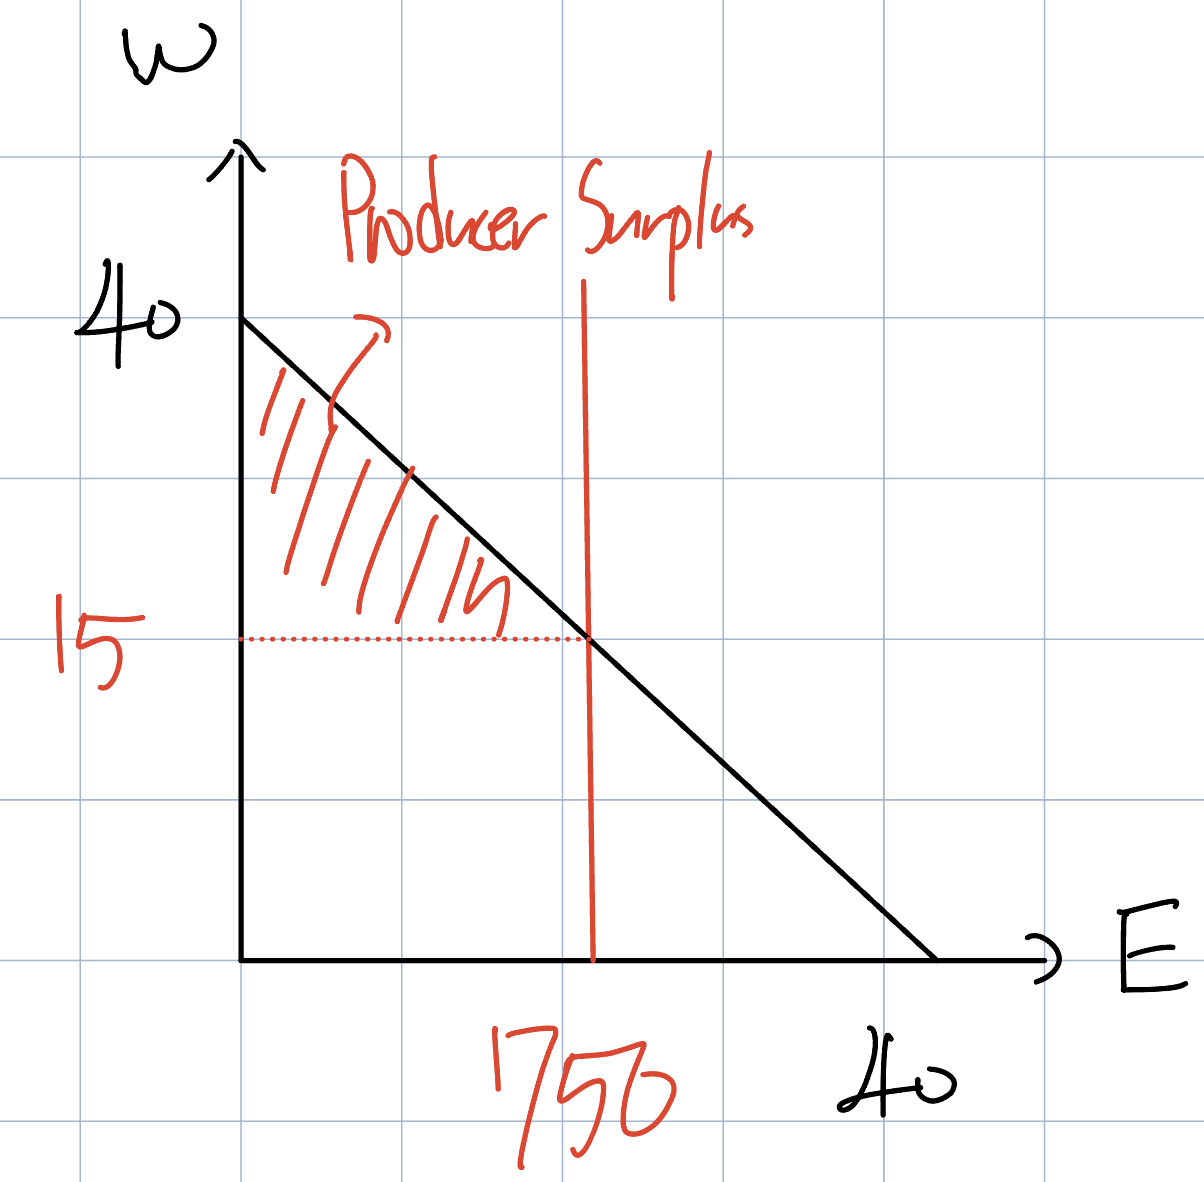 W
Producer Surplus
40
15
E
1750
40